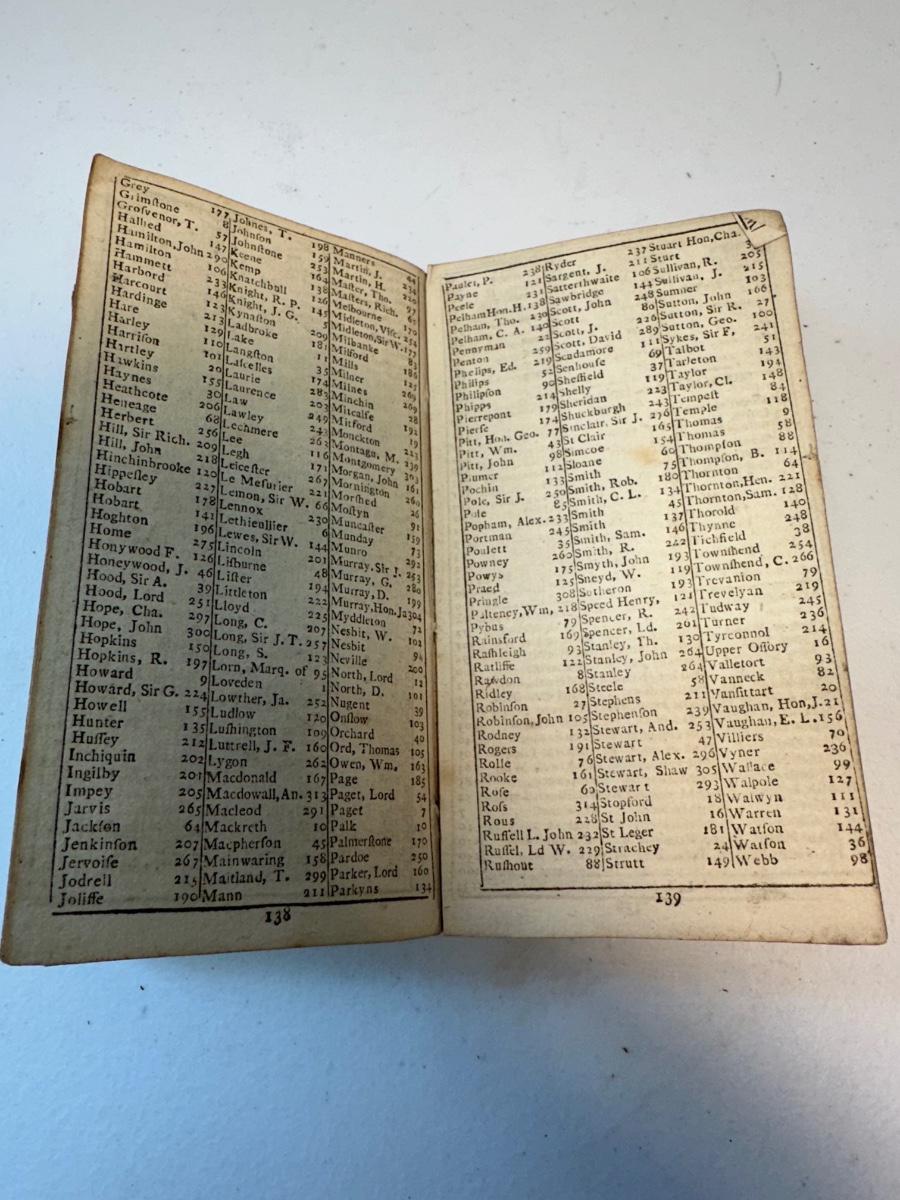 Grey 177
Grimſtone 8
Groſvenor, T. 57
Halhed 147
Hamilton,John 290
Hamilton 106
Hammett 233
Harbord 146
Harcourt 123
Hardinge 213
Hare 129
Harley 110
Harriſon 101
Hartley 20
Hawkins 155
Haynes 30
Heathcote 206
Heneage 68
Herbert 256
Hill, Sir Rich. 209
Hill, John 218
Hinchinbrooke 120
Hippeſley 227
Hobart 178
Hobart 141
Hoghton 196
Home 275
Honywood F. 126
Honeywood, J. 46
Hood, Sir A. 39
Hood, Lord 251
Hope, Cha. 297
Hope, John 300
Hopkins 150
Hopkins, R. 197
Howard 9
Howard, Sir G. 224
Howell 155
Hunter 135
Huſſey 212
Inchiquin 202
Ingilby 201
Impey 205
Jarvis 265
Jackſon 64
Jenkinſon 207
Jervoiſe 267
Jodrell 215
Joliffe 190
Johnes, T. 198
Johnſon 159
Johnſtone 253
Keene 164
Kemp 138
Knatchbull 126
Knight, R. P. 145
Knight, J. G. 5
Kynaſton 209
Ladbroke 181
Lake 11
Langſton 35
Laſcelles 174
Laurie 283
Laurence 203
Law 249
Lawley 243
Lechmere 263
Lee 116
Legh 171
Leiceſter 267
Le Meſurier 221
Lemon, Sir W. 66
Lennox 230
Lethieullier 6
Lewes, Sir W. 144
Lincoln 201
Liſburne 48
Liſter 194
Littleton 222
Lloyd 225
Long, C. 207
Long, Sir J. T. 257
Long, S. 123
Lorn, Marq. of 95
Loveden 1
Lowther, Ja. 252
Ludlow 120
Luſhington 109
Luttrell, J. F. 160
Lygon 262
Macdonald 167
Macdowall, An. 313
Macleod 291
Mackreth 10
Macpherſon 45
Mainwaring 158
Maitland, T. 299
Mann 211
Manners 44
Martin, J. 234
Martin, H. 220
Maſter, Tho. 97
Maſters, Rich. 65
Melbourne 170
Midleton, Viſc. 254
Midleton, Sir W. 177
Milbanke 83
Milford 186
Mills 125
Milner 269
Milnes 269
Minchin 28
Mitcalfe 192
Mitford 19
Monckton 213
Montagu, M. 139
Montgomery 203
Morgan, John 161
Mornington 260
Morſhed 26
Moſtyn 91
Muncaſter 159
Munday 73
Munro 292
Murray, Sir J. 253
Murray, G. 280
Murray, D. 199
Murray, Hon.Ja 304
Myddleton 72
Nesbit, W. 102
Nesbit 94
Neville 200
North, Lord 12
North, D. 101
Nugent 39
Onſlow 103
Orchard 40
Ord, Thomas 105
Owen, Wm. 163
Page 185
Paget, Lord 54
Paget 7
Palk 10
Palmerſtone 170
Pardoe 250
Parker, Lord 160
Parkyns 134
138
Paulet, P. 238
Payne 121
Peele 231
Pelham Hon. H. 138
Pelham, Tho. 230
Pelham, C. A. 140
Pennyman 22
Penton 259
Phelips, Ed. 219
Philips 52
Philipſon 90
Phipps 214
Pierrepont 179
Pierſe 174
Pitt, Hon. Geo. 77
Pitt, Wm. 43
Pitt, John 98
Plumer 112
Pochin 133
Pole, Sir J. 250
Pole 85
Popham, Alex. 233
Portman 245
Poulett 35
Powney 260
Powys 175
Praed 125
Pringle 308
Pulteney, Wm, 218
Pybus 79
Rainsford 169
Raſhleigh 93
Ratliffe 122
Rawdon 8
Ridley 168
Robinſon 27
Robinſon, John 105
Rodney 132
Rogers 191
Rolle 76
Rooke 161
Roſe 60
Roſs 314
Rous 228
Ruſſell L. John 232
Ruſſel, Ld W. 229
Ruſhout 88
Ryder 237
Sargent, J. 211
Satterthwaite 106
Sawbridge 144
Scott, John 248
Scott 80
Scott, J. 226
Scott, David 289
Scudamore 111
Senhouſe 69
Sheffield 37
Shelly 119
Sheridan 223
Shuckburgh 243
Sinclair, Sir J. 276
St Clair 165
Simcoe 154
Sloane 60
Smith 75
Smith, Rob. 180
Smith, C. L. 134
Smith 45
Smith 137
Smith, Sam. 146
Smith, R. 222
Smyth, John 193
Sneyd, W. 119
Sotheron 193
Speed Henry, 121
Spencer, R. 242
Spencer, Ld. 201
Stanley, Th. 130
Stanley, John 264
Stanley 264
Steele 58
Stephens 211
Stephenſon 239
Stewart, And. 253
Stewart 47
Stewart, Alex. 296
Stewart, Shaw 305
Stewart 293
Stopford 18
St John 16
St Leger 181
Strachey 24
Strutt 149
Stuart Hon, Cha.
Sturt
Sullivan, R. 205
Sullivan, J. 215
Sumner 103
Sutton, John 166
Sutton, Sir R. 27
Sutton, Geo. 100
Sykes, Sir F, 241
Talbot 51
Tarleton 143
Taylor 194
Taylor, Cl. 148
Tempeſt 84
Temple 118
Thomas 9
Thomas 58
Thompſon 88
Thompſon, B. 114
Thornton 64
Thornton, Hen. 221
Thornton, Sam. 128
Thorold 140
Thynne 248
Tichfield 38
Townſhend 254
Townſhend, C. 266
Trevanion 79
Trevelyan 219
Tudway 245
Turner 236
Tyrconnol 214
Upper Oſſory 16
Valletort 93
Vanneck 82
Vanſittart 20
Vaughan, Hon, J. 21
Vaughan, E. L. 156
Villiers 70
Vyner 236
Wallace 99
Walpole 127
Walwyn 111
Warren 131
Watſon 144
Watſon 36
Webb 98
139